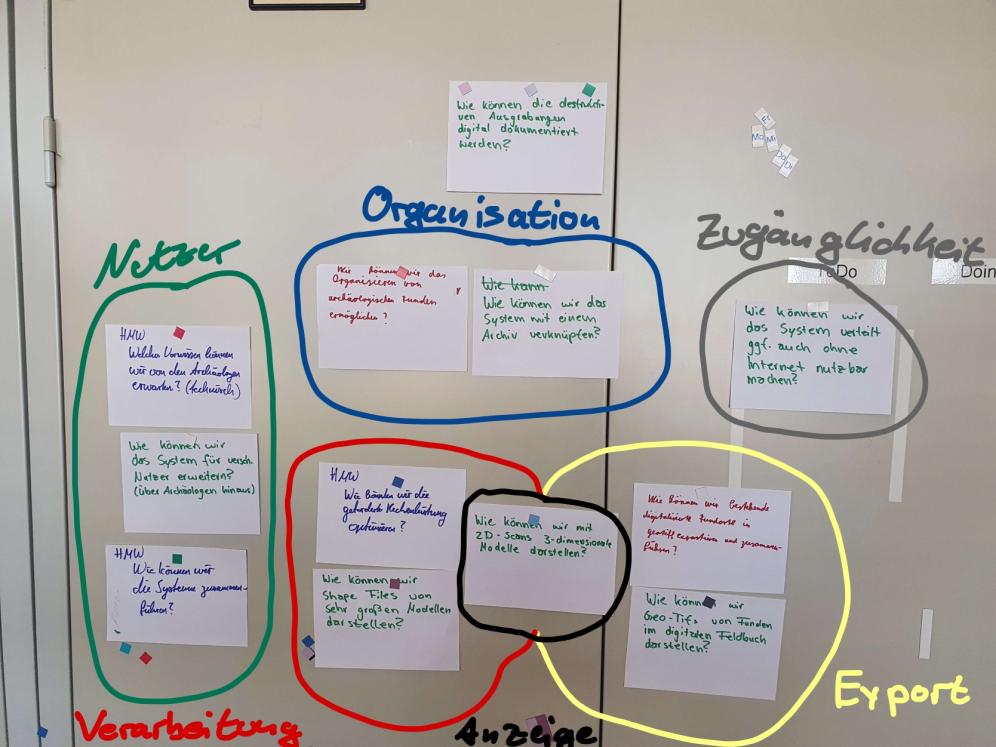 Wie können die destrukti-
ven Ausgrabungen
digital dokumentiert
werden?
Fr
Mo Mi
Do Di
Organisation
Wie können wir das
Organisieren von
archäologischen Funden
ermöglichen?
Wie kann
Wie können wir das
System mit einem
Archiv verknüpfen?
Zugänglichkeit
ToDo
Doin
Wie können wir
das System verteilt
ggf. auch ohne
Internet nutzbar
machen?
Nutzer
HMW
Welches Vorwissen können
wir von den Archäologen
erwarten? (technisch)
Wie können wir
das System für versch.
Nutzer erweitern?
(über Archäologen hinaus)
HMW
Wie können wir
die Systeme zusammen-
führen?
Verarbeitung
HMW
Wie können wir die
geforderte Rechenleistung
optimieren?
Wie können wir
Shape Files von
sehr großen Modellen
darstellen?
Anzeige
Wie können wir mit
2D-Scans 3-dimensionale
Modelle darstellen?
Export
Wie können wir bestehende
digitalisierte Fundorte in
geotiff exportieren und zusammen-
führen?
Wie können wir
Geo-Tifs von Funden
im digitalen Feldbuch
darstellen?